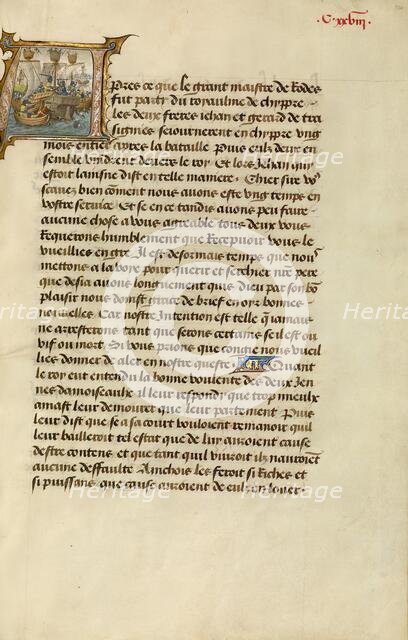 C xxviii
Apres ce que le grant maistre de Rodes
fut party du royaulme de chyppre
les deux freres iehan et gerard de tra
signies seiournerent en chyppre ung
mois entier apres la bataille Puis eulz deux en
semble vindrent devers le roy Et lors Jehan qui
estoit laisne dist en telle maniere Chier sire vos
scavez bien comment nous avons este ung temps en
vostre service Et se en ce tandis avons peu faire
aucune chose a vous agreable tous deux vous
Requerons humblement que Recepuoir vous le
vueillies en gre Il est desormais temps que nous
mettons a la voye pour querir et serchier nostre pere
que desia avons longuement quis dieu par son bon
plaisir nous doinst grace de brief en oyr bonnes
nouuelles Car nostre Intention est telle que iamais
ne arresterons tant que serons certains se il est ou
vif ou mort Si vous prions que congie nous vueil
lies donner de aler en nostre queste Quant
le roy eut entendu la bonne voulente des deux Jen
nes damoiseaulx il leur respondy que trop mieulx
amast leur demourer que leur partement Puis
leur dist que se a sa court vouloient remanoir quil
leur bailleroit tel estat que de luy auroient cause
destre contens et que tant quil vivroit ilz nauroient
aucune deffaulte Ainchois les feroit si Riches et
si puissans que cause auroient de eulz en louer
Heritage
Heritage
Heritage
Heritage
Heritage
Heritage